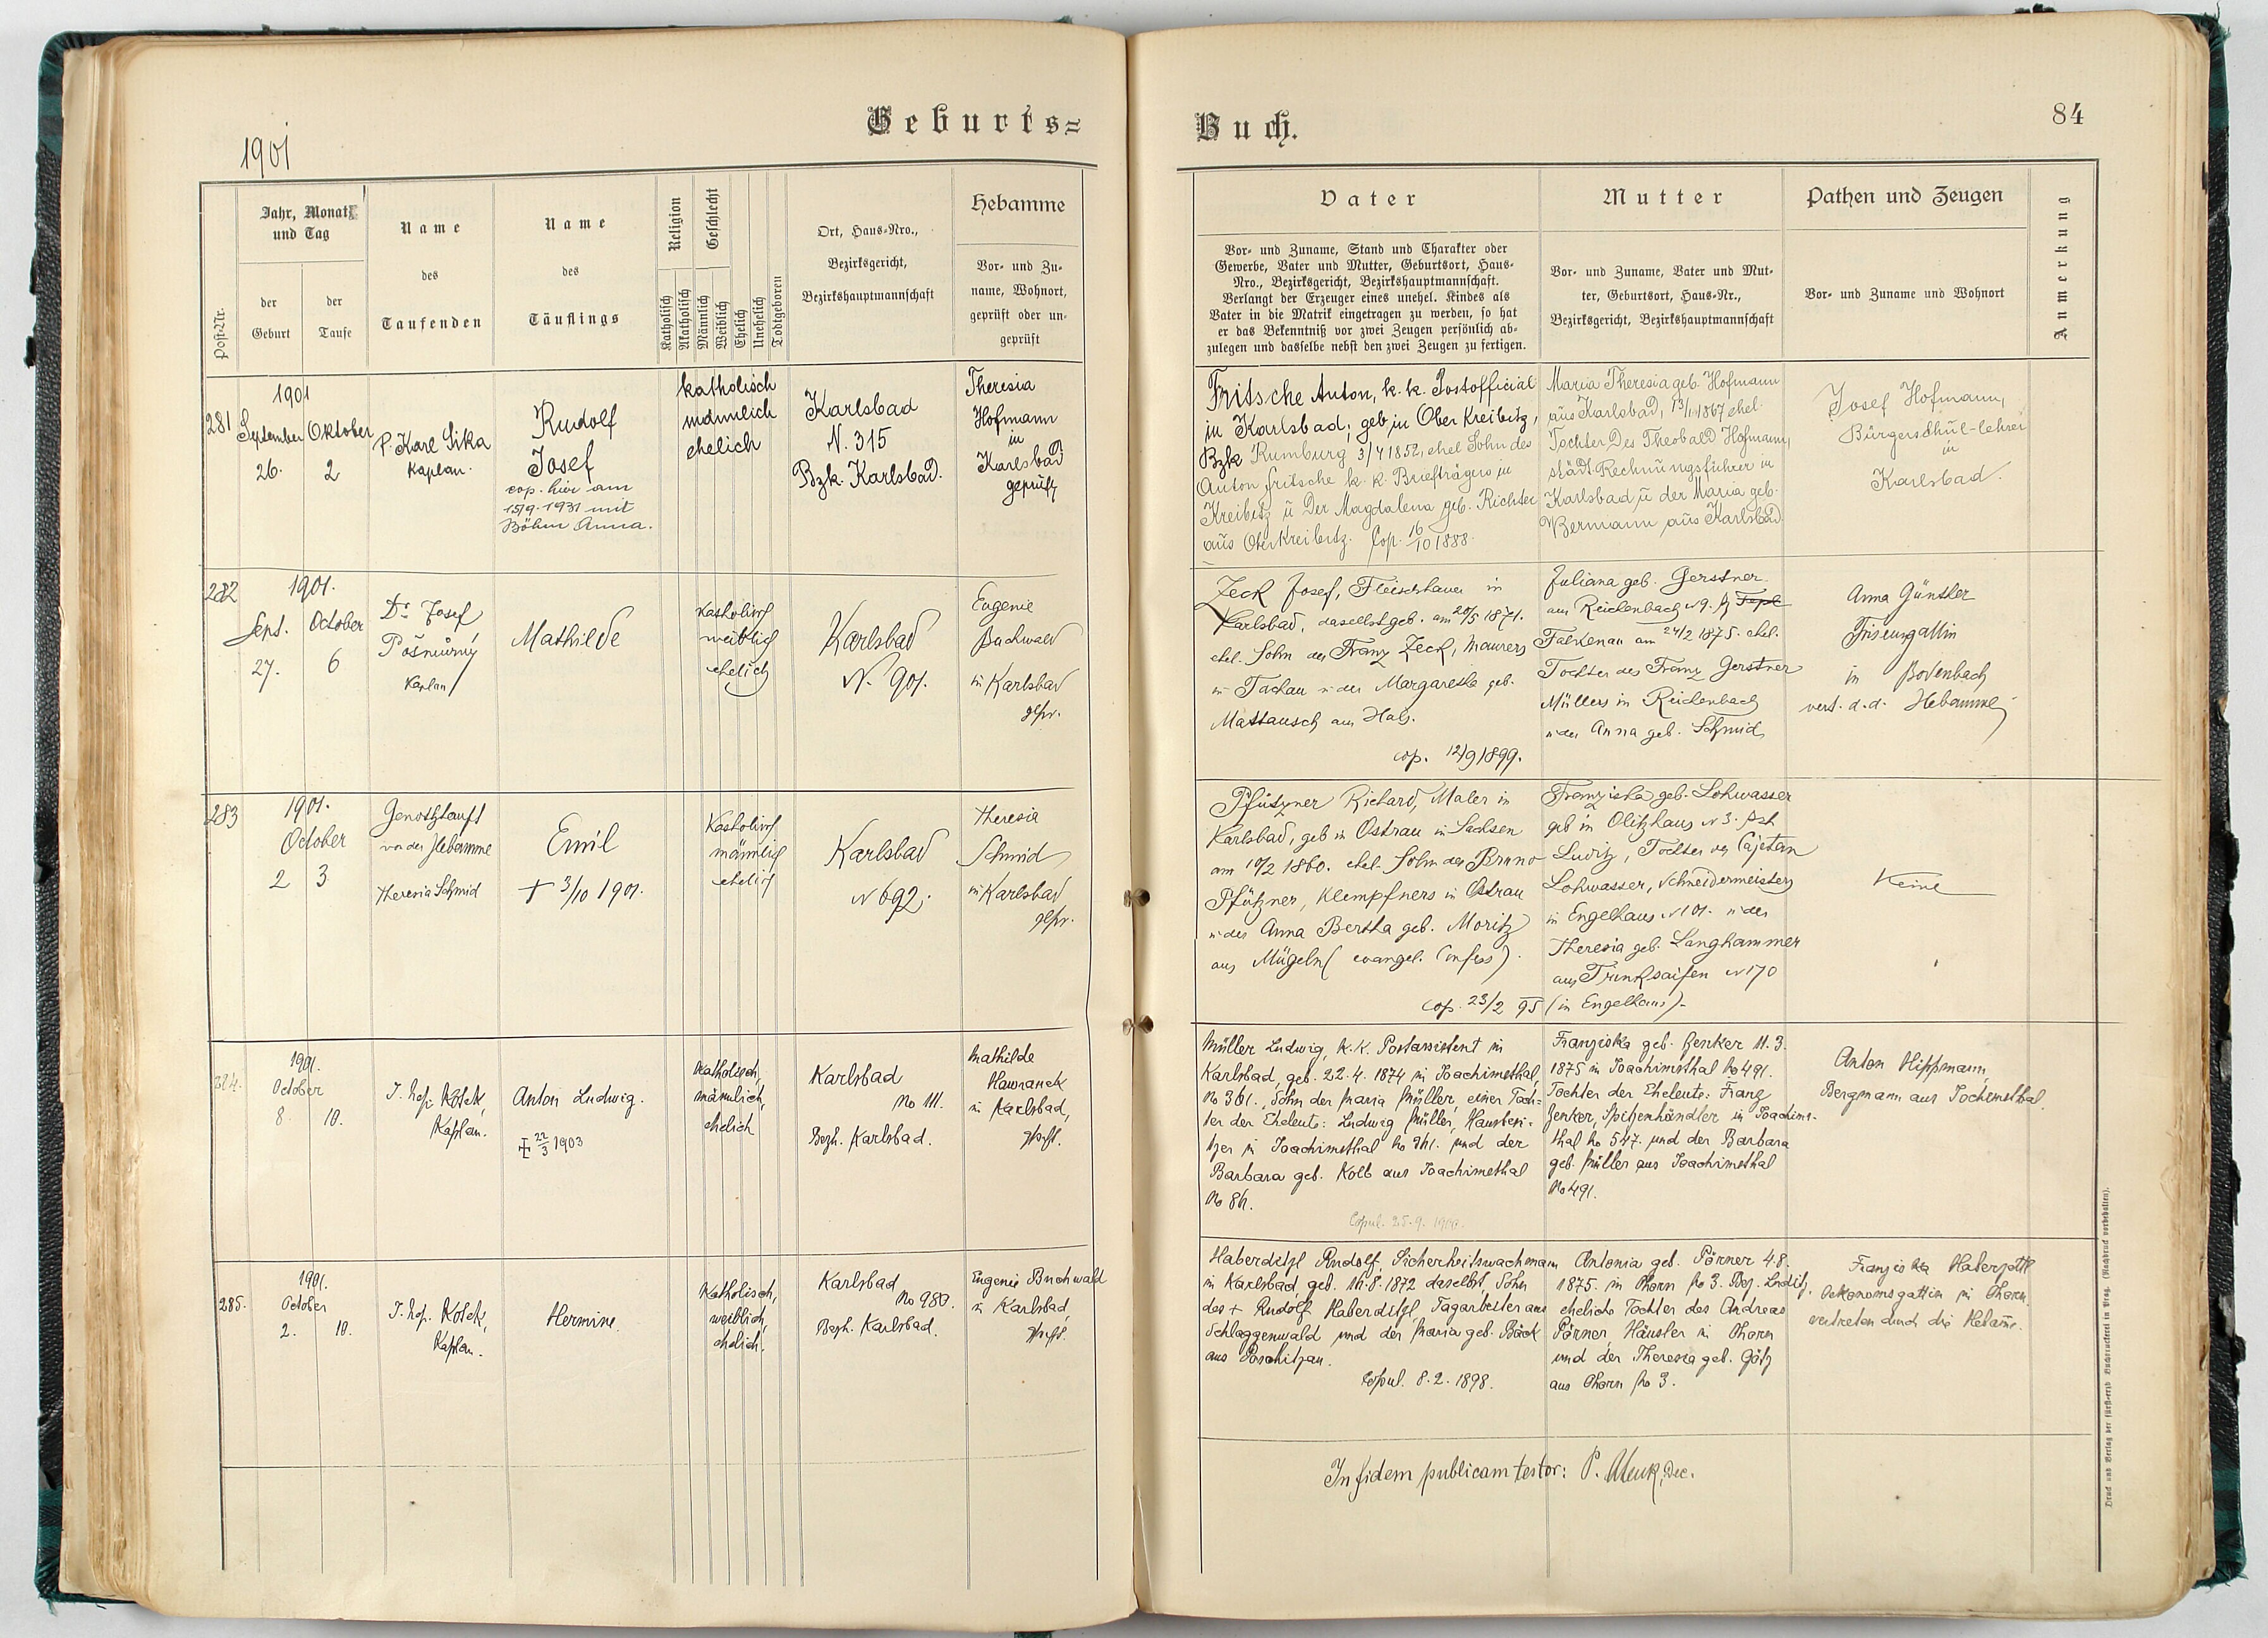 Geburts=
1901
Jahr, Monat
und Tag
der
Geburt
der
Taufe
Post-Nr.
Name
des
Taufenden
Name
des
Täuflings
Religion
Geschlecht
Katholisch
Akatholisch
Männlich
Weiblich
Ehelich
Unehelich
Todtgeboren
Ort, Haus-Nro.,
Bezirksgericht,
Bezirkshauptmannschaft
Hebamme
Vor- und Zu-
name, Wohnort,
geprüft oder un-
geprüft
281
1901
September
26.
Oktober
2
P. Karl Sika
Kaplan.
Rudolf
Josef
cop. hier am
15/9. 1931 mit
Böhm Anna.
katholisch
männlich
ehelich
Karlsbad
N. 315
Bzk. Karlsbad.
Theresia
Hofmann
in
Karlsbad
geprüft
282
1901.
Sept.
27.
October
6
Dr. Josef
Kaplan
Mathilde
Katholisch
weiblich
ehelich
Karlsbad
N. 901.
Eugenie
Buchwald
in Karlsbad
gepr.
283
1901.
October
2
3
Genothtauft
von der Hebamme
Theresia Schmid
Emil
+ 3/10 1901.
Katholisch
männlich
ehelich
Karlsbad
N 692.
Theresia
Schmid
in Karlsbad
gepr.
284.
1901.
October
8.
10.
Kaplan.
Anton Ludwig.
22/3 1903
Katholisch,
männlich,
ehelich
Karlsbad
No 111.
Bezh. Karlsbad.
Mathilde
Hawranek
in Karlsbad,
geprft.
285.
1901.
October
2.
10.
Kaplan.
Hermine.
Katholisch,
weiblich,
ehelich.
Karlsbad
No 980.
Bezh. Karlsbad.
Eugenie Buchwald
in Karlsbad,
geprft.
Buch.
84
Vater
Vor- und Zuname, Stand und Charakter oder
Gewerbe, Vater und Mutter, Geburtsort, Haus-
Nro., Bezirksgericht, Bezirkshauptmannschaft.
Verlangt der Erzeuger eines unehel. Kindes als
Vater in die Matrik eingetragen zu werden, so hat
er das Bekenntniß vor zwei Zeugen persönlich ab-
zulegen und dasselbe nebst den zwei Zeugen zu fertigen.
Mutter
Vor- und Zuname, Vater und Mut-
ter, Geburtsort, Haus-Nr.,
Bezirksgericht, Bezirkshauptmannschaft
Pathen und Zeugen
Vor- und Zuname und Wohnort
Anmerkung
Fritsche Anton, k. k. Postofficial
in Karlsbad, geb. in Ober Kreibitz,
Bzk Rumburg 3/4 1852, ehel Sohn des
Anton Fritsche k. k. Briefträgers in
Kreibitz u der Magdalena geb. Richter
aus Oberkreibitz. Cop. 16/10 1888.
Maria Theresia geb. Hofmann
aus Karlsbad, 13/1 1867 ehel.
Tochter des Theobald Hofmann,
städt. Rechnungsführer in
Karlsbad u der Maria geb.
Bermann aus Karlsbad
Josef Hofmann,
Bürgerschul-lehrer
in
Karlsbad.
Zeck Josef, Fleischhauer in
Karlsbad, daselbst geb. am 20/5 1871.
ehel. Sohn des Franz Zeck, Maurers
in Tachau u der Margarethe geb.
Mattausch aus Hals.
cop. 12/9 1899.
Juliana geb. Gerstner
aus Reichenbach N 9. Tepl
Falkenau am 24/2 1875. ehel.
Tochter des Franz Gerstner
Müllers in Reichenbach
u der Anna geb. Schmid
Anna Günther
Friseursgattin
in Bodenbach
vert. d. d. Hebamme
Pfützner Richard, Maler in
Karlsbad, geb in Ostrau in Sachsen
am 10/2 1860. ehel. Sohn des Bruno
Pfützner, Klempfners in Ostrau
u der Anna Bertha geb. Moritz
aus Mügeln (evangel. Confess).
cop. 23/2 95 (in Engelhaus)-
Franziska geb. Lohwasser
geb in Olitzhaus N 3.
Luditz, Tochter des Cajetan
Lohwasser, Schneidermeisters
in Engelhaus N 101. u der
Theresia geb. Langhammer
aus Trinksaifen N 170
Keine
Müller Ludwig, k. k. Postassistent in
Karlsbad, geb. 22. 4. 1874 in Joachimsthal,
No 361., Sohn der Maria Müller, einer Toch-
ter der Eheleute: Ludwig Müller, Hausbesi-
tzer in Joachimsthal No 361. und der
Barbara geb. Kolb aus Joachimsthal
No 86.
Copul. 25. 9. 1900.
Franziska geb. Zenker 11. 3.
1875 in Joachimsthal No 491.
Tochter der Eheleute: Franz
Zenker, Spitzenhändler in Joachims-
thal No 547. und der Barbara
geb. Müller aus Joachimsthal
No 491.
Anton Hippmann,
Bergmann aus Jochimsthal.
Haberditzl Rudolf, Sicherheitswachmann
in Karlsbad, geb. 16. 8. 1872 daselbst, Sohn
des + Rudolf Haberditzl, Tagarbeiter aus
Schlaggenwald und der Maria geb. Bäck
aus Poschitzau.
Copul. 8. 2. 1898.
Antonia geb. Pörner 4. 8.
1875. in Thorn No 3. Bez. Luditz,
eheliche Tochter des Andreas
Pörner, Häusler in Thorn
und der Theresia geb. Götz
aus Thorn No 3.
Franziska
Oekonomsgattin in Thorn.
vertreten durch die Hebame.
In fidem publicam testor: P. Dec.
Druck und Verlag der fürst-erzb. Buchdruckerei in Prag. (Nachdruck vorbehalten).